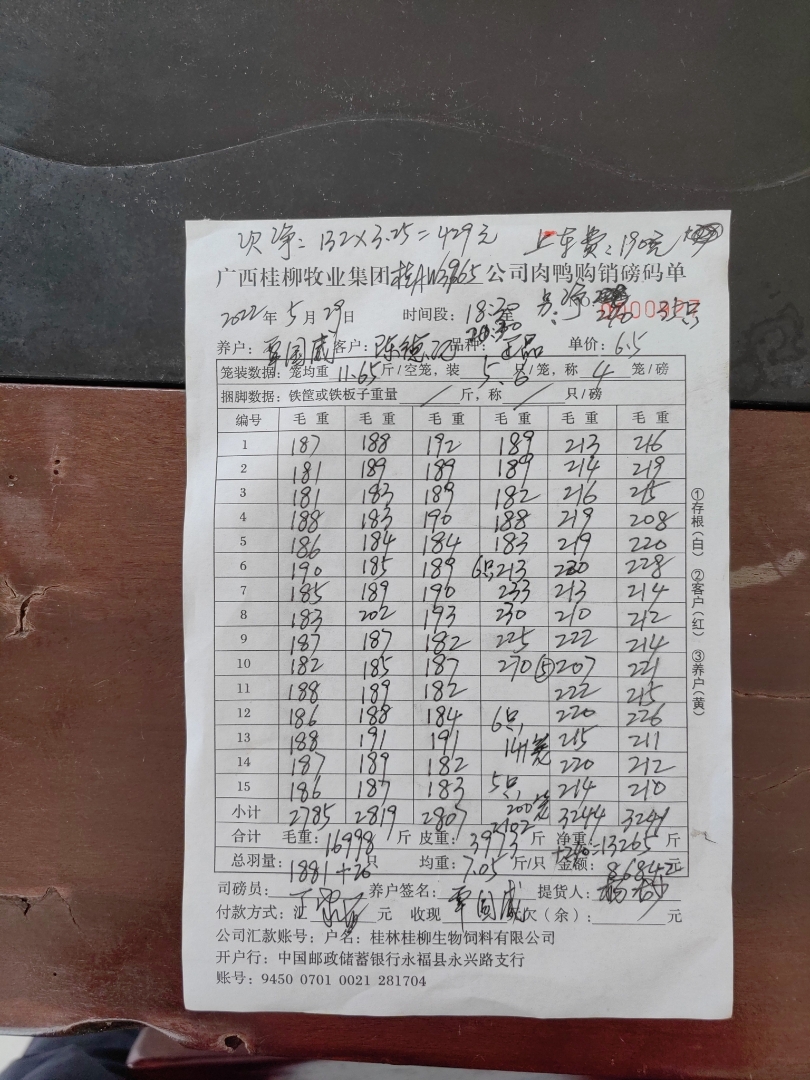 次净：132×3.25=429元 上车费：190元
广西桂柳牧业集团 公司肉鸭购销磅码单
2022年5月29日 时间段：18:30
20:30 240
养户：覃国威 客户：陈德 品种：正品 单价：6.5
笼装数据：笼均重11.65斤/空笼，装5.6只/笼，称4笼/磅
捆脚数据：铁筐或铁板子重量/斤，称/只/磅
编号 毛重 毛重 毛重 毛重 毛重 毛重
1 187 188 192 189 213 216
2 181 189 189 189 214 219
3 181 183 189 182 216 215
4 188 183 190 188 219 208
5 186 184 184 183 219 220
6 190 185 189 6只213 220 228
7 185 189 190 233 213 214
8 183 202 193 230 210 212
9 187 187 182 225 222 214
10 182 185 187 270⑤ 207 221
11 188 189 182 222 215
12 186 188 184 6只, 220 226
13 188 191 191 141笼 215 211
14 187 189 182 220 212
15 186 187 183 5只, 214 210
200笼
小计 2785 2819 2807 2102 3244 3241
合计 毛重：16998斤 皮重：3973斤 净重：+240=13265斤
总羽量：1881+26只 均重：7.05斤/只 金额：86842元
司磅员： 养户签名：覃国威 提货人：
付款方式：汇 元 收现 欠（余）： 元
公司汇款账号：户名：桂林桂柳生物饲料有限公司
开户行：中国邮政储蓄银行永福县永兴路支行
账号：9450 0701 0021 281704
①存根（白） ②客户（红） ③养户（黄）